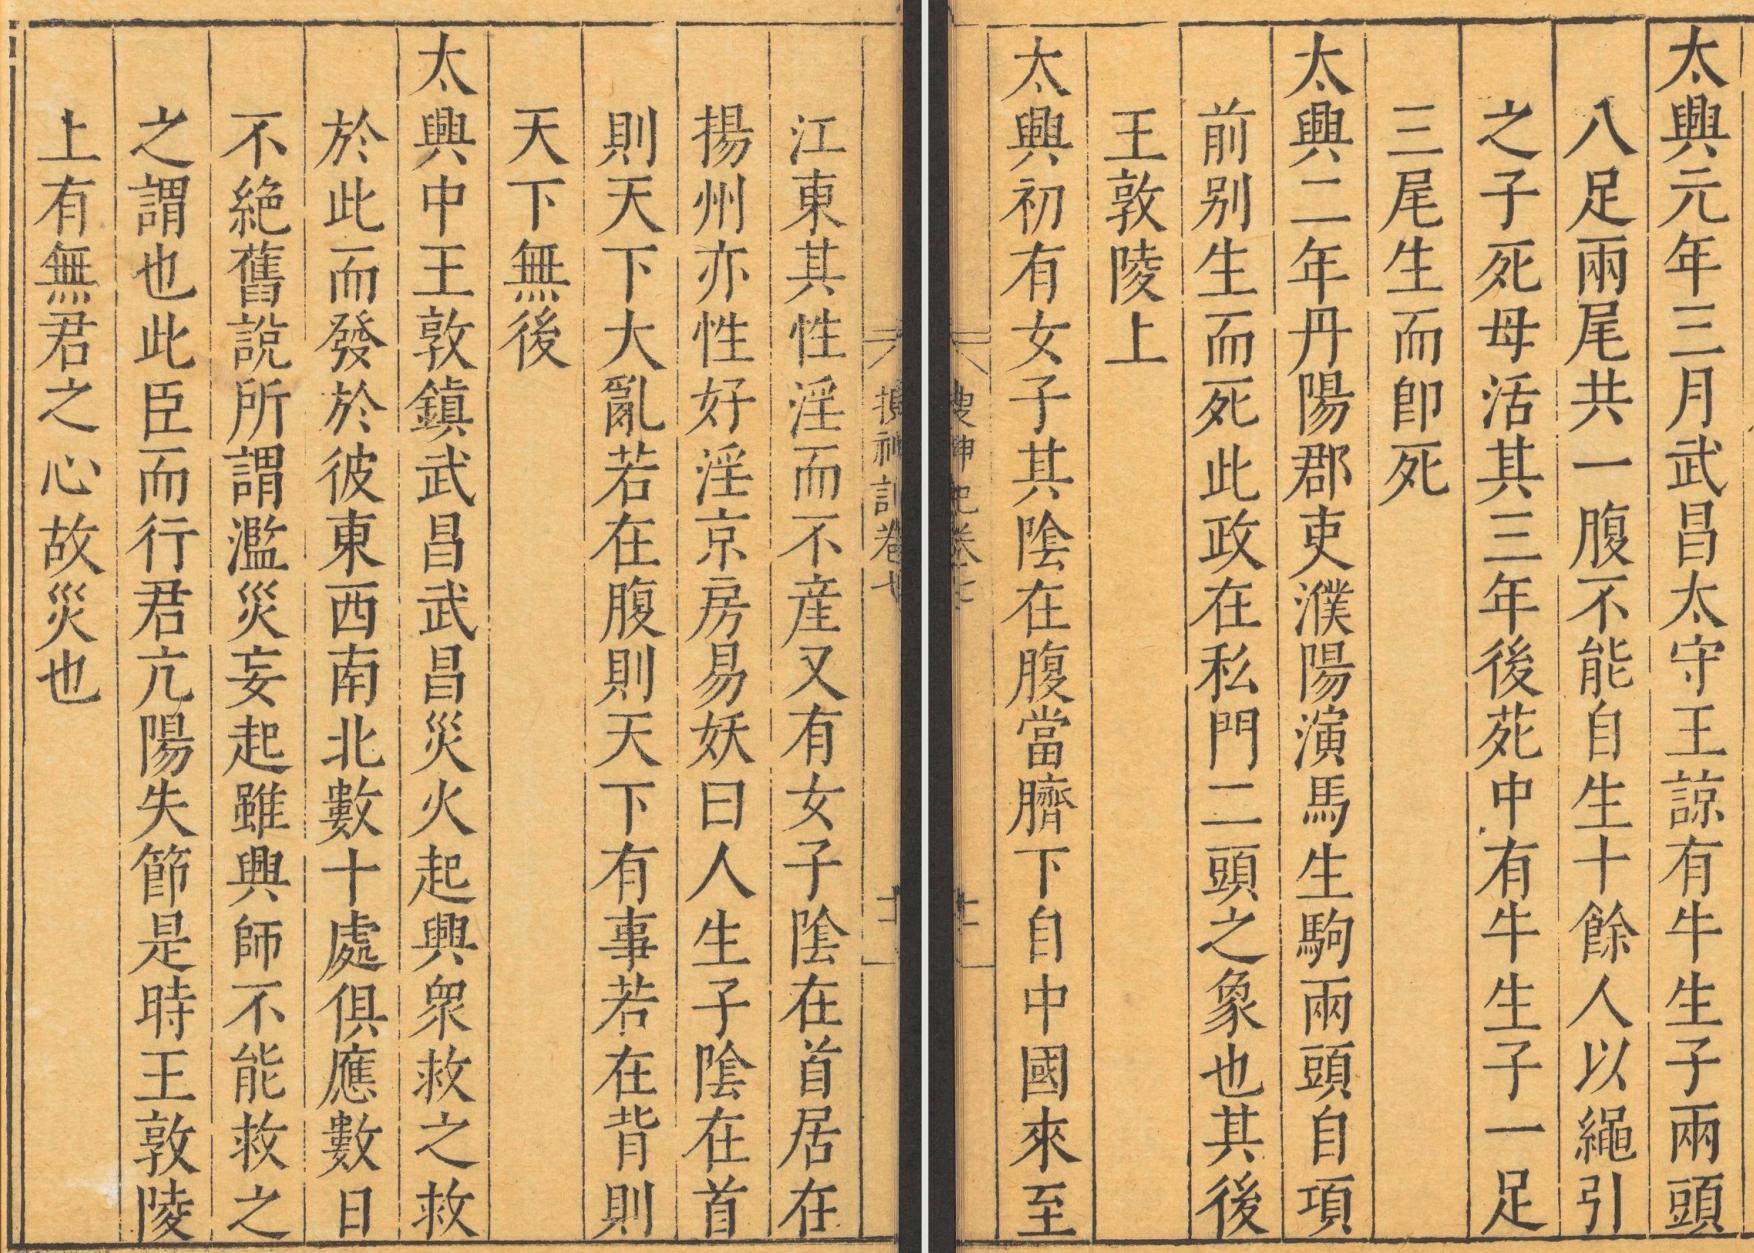 太興元年三月武昌太守王諒有牛生子兩頭
八足兩尾共一腹不能自生十餘人以繩引
之子死母活其三年後苑中有牛生子一足
三尾生而卽死
太興二年丹陽郡吏濮陽演馬生駒兩頭自項
前别生而死此政在私門二頭之象也其後
王敦陵上
太興初有女子其陰在腹當臍下自中國來至
搜神記卷七
江東其性淫而不産又有女子陰在首居在
揚州亦性好淫京房易妖曰人生子陰在首
則天下大亂若在腹則天下有事若在背則
天下無後
太興中王敦鎮武昌武昌災火起興衆救之救
於此而發於彼東西南北數十處俱應數日
不絶舊說所謂濫災妄起雖興師不能救之
之謂也此臣而行君亢陽失節是時王敦陵
上有無君之心故災也